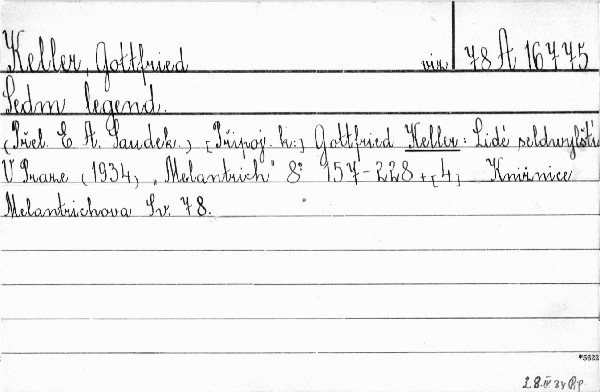 Keller, Gottfried viz 78 A 16775
Sedm legend.
(Přel. E. A. Saudek.) [Připoj. k:] Gottfried Keller: Lidé seldwylští
V Praze (1934) „Melantrich" 8° 157-228 + [4] Knižnice
Melantrichova Sv. 78.
*5622
28. IV